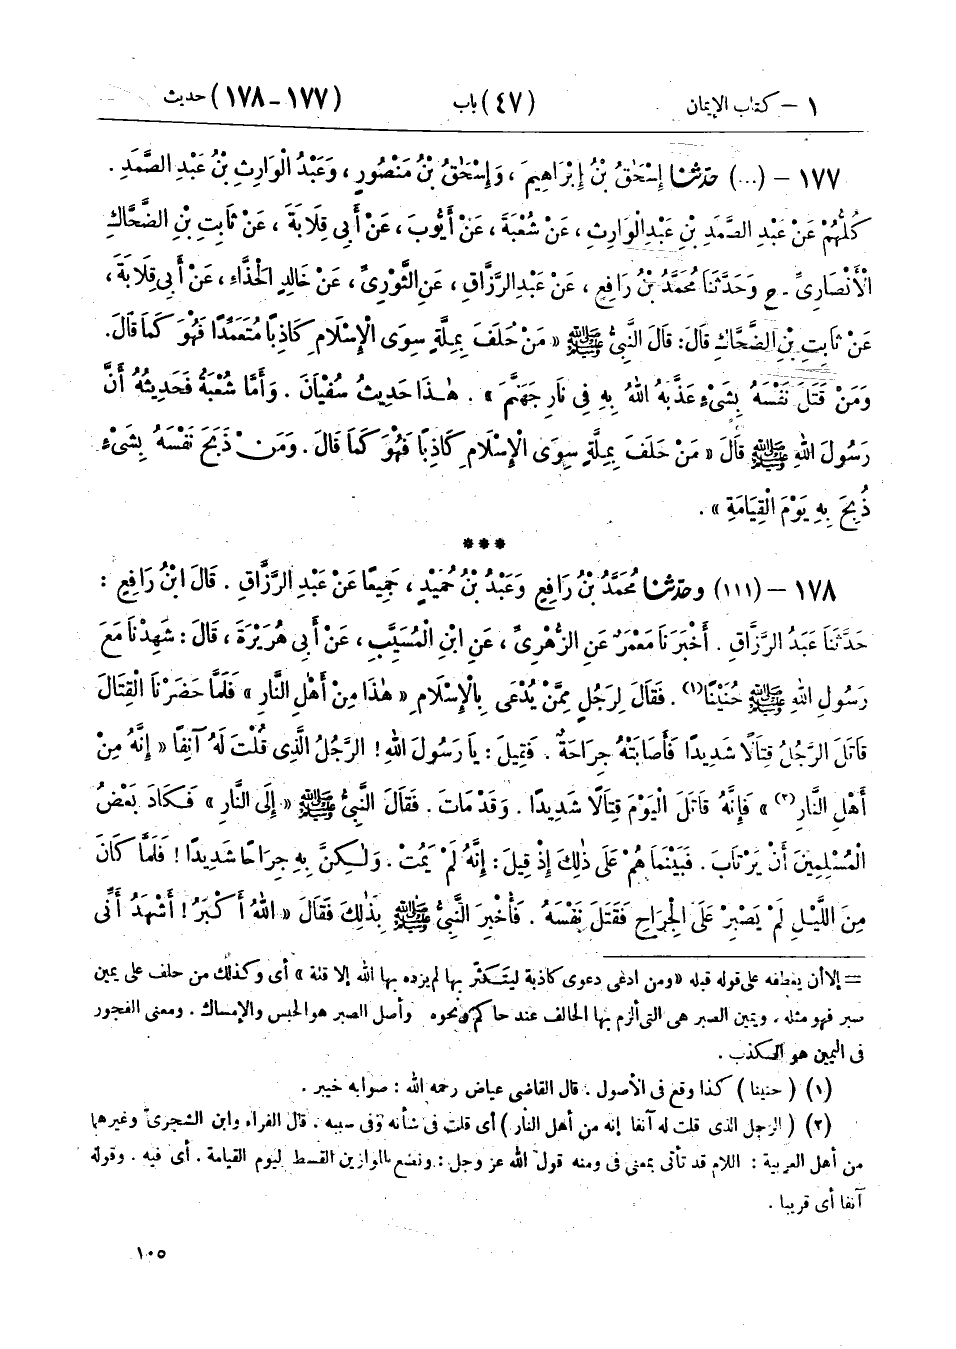 ١ – كتاب الإيمان (٤٧) باب (١٧٧-١٧٨) حديث
١٧٧ – (...) حدّثنا إِسْحَاقُ بْنُ إِبْرَاهِيمَ ، وَإِسْحَاقُ بْنُ مَنْصُورٍ ، وَعَبْدُ الْوَارِثِ بْنُ عَبْدِ الصَّمَدِ .
كُلُّهُمْ عَنْ عَبْدِ الصَّمَدِ بْنِ عَبْدِ الْوَارِثِ ، عَنْ شُعْبَةَ ، عَنْ أَيُّوبَ ، عَنْ أَبِي قِلَابَةَ ، عَنْ ثَابِتِ بْنِ الضَّحَّاكِ
الْأَنْصَارِيِّ . ح وَحَدَّثَنَا مُحَمَّدُ بْنُ رَافِعٍ ، عَنْ عَبْدِ الرَّزَّاقِ ، عَنِ الثَّوْرِيِّ ، عَنْ خَالِدٍ الْحَذَّاءِ ، عَنْ أَبِي قِلَابَةَ ،
عَنْ ثَابِتِ بْنِ الضَّحَّاكِ قَالَ : قَالَ النَّبِيُّ ﷺ « مَنْ حَلَفَ بِمِلَّةٍ سِوَى الْإِسْلَامِ كَاذِبًا مُتَعَمِّدًا فَهُوَ كَمَا قَالَ .
وَمَنْ قَتَلَ نَفْسَهُ بِشَيْءٍ عَذَّبَهُ اللهُ بِهِ فِي نَارِ جَهَنَّمَ » . هٰذَا حَدِيثُ سُفْيَانَ . وَأَمَّا شُعْبَةُ فَحَدِيثُهُ أَنَّ
رَسُولَ اللهِ ﷺ قَالَ « مَنْ حَلَفَ بِمِلَّةٍ سِوَى الْإِسْلَامِ كَاذِبًا فَهُوَ كَمَا قَالَ . وَمَنْ ذَبَحَ نَفْسَهُ بِشَيْءٍ
ذُبِحَ بِهِ يَوْمَ الْقِيَامَةِ » .
***
١٧٨ – (١١١) وحدّثنا مُحَمَّدُ بْنُ رَافِعٍ وَعَبْدُ بْنُ حُمَيْدٍ ، جَمِيعًا عَنْ عَبْدِ الرَّزَّاقِ . قَالَ ابْنُ رَافِعٍ :
حَدَّثَنَا عَبْدُ الرَّزَّاقِ . أَخْبَرَنَا مَعْمَرٌ عَنِ الزُّهْرِيِّ ، عَنِ ابْنِ الْمُسَيَّبِ ، عَنْ أَبِي هُرَيْرَةَ ، قَالَ : شَهِدْنَا مَعَ
رَسُولِ اللهِ ﷺ حُنَيْنًا(١) . فَقَالَ لِرَجُلٍ مِمَّنْ يُدْعَى بِالْإِسْلَامِ « هٰذَا مِنْ أَهْلِ النَّارِ » فَلَمَّا حَضَرْنَا الْقِتَالَ
قَاتَلَ الرَّجُلُ قِتَالًا شَدِيدًا فَأَصَابَتْهُ جِرَاحَةٌ . فَقِيلَ : يَا رَسُولَ اللهِ ! الرَّجُلُ الَّذِي قُلْتَ لَهُ آنِفًا « إِنَّهُ مِنْ
أَهْلِ النَّارِ(٢) » فَإِنَّهُ قَاتَلَ الْيَوْمَ قِتَالًا شَدِيدًا . وَقَدْ مَاتَ . فَقَالَ النَّبِيُّ ﷺ « إِلَى النَّارِ » فَكَادَ بَعْضُ
الْمُسْلِمِينَ أَنْ يَرْتَابَ . فَبَيْنَمَا هُمْ عَلَى ذٰلِكَ إِذْ قِيلَ : إِنَّهُ لَمْ يَمُتْ . وَلٰكِنَّ بِهِ جِرَاحًا شَدِيدًا ! فَلَمَّا كَانَ
مِنَ اللَّيْلِ لَمْ يَصْبِرْ عَلَى الْجِرَاحِ فَقَتَلَ نَفْسَهُ . فَأُخْبِرَ النَّبِيُّ ﷺ بِذٰلِكَ فَقَالَ « اللهُ أَكْبَرُ ! أَشْهَدُ أَنِّي
= إلا أن يعطفه على قوله قبله « ومن ادعى دعوى كاذبة ليتكثر بها لم يزده بها الله إلا قلة » أى وكذلك من حلف على يمين
صبر فهو مثله . ويمين الصبر هى التى ألزم بها الحالف عند حاكم ونحوه وأصل الصبر هو الحبس والإمساك . ومعنى الفجور
فى اليمين هو الكذب .
(١) ( حنينا ) كذا وقع فى الأصول . قال القاضى عياض رحمه الله : صوابه خيبر .
(٢) ( الرجل الذى قلت له آنفا إنه من أهل النار ) أى قلت فى شأنه وفى سببه . قال الفراء وابن الشجرىّ وغيرهما
من أهل العربية : اللام قد تأتى بمعنى فى ومنه قول الله عز وجل : ونضع الموازين القسط ليوم القيامة . أى فيه . وقوله
آنفا أى قريبا .
١٠٥